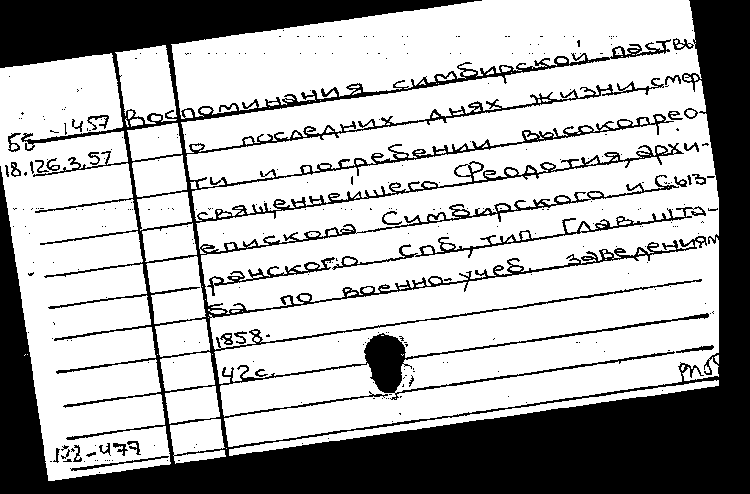 Воспоминания симбирской паствы
Б5-1457
о последних днях жизни, смер
18.126.3.57
ти и погребении высокопрео-
священнейшего Феодотия, архи-
епископа Симбирского и Сыз-
ранского. СПб., тип Глав. шта-
ба по военно-учеб. заведениям
1858.
42 с.
122-477